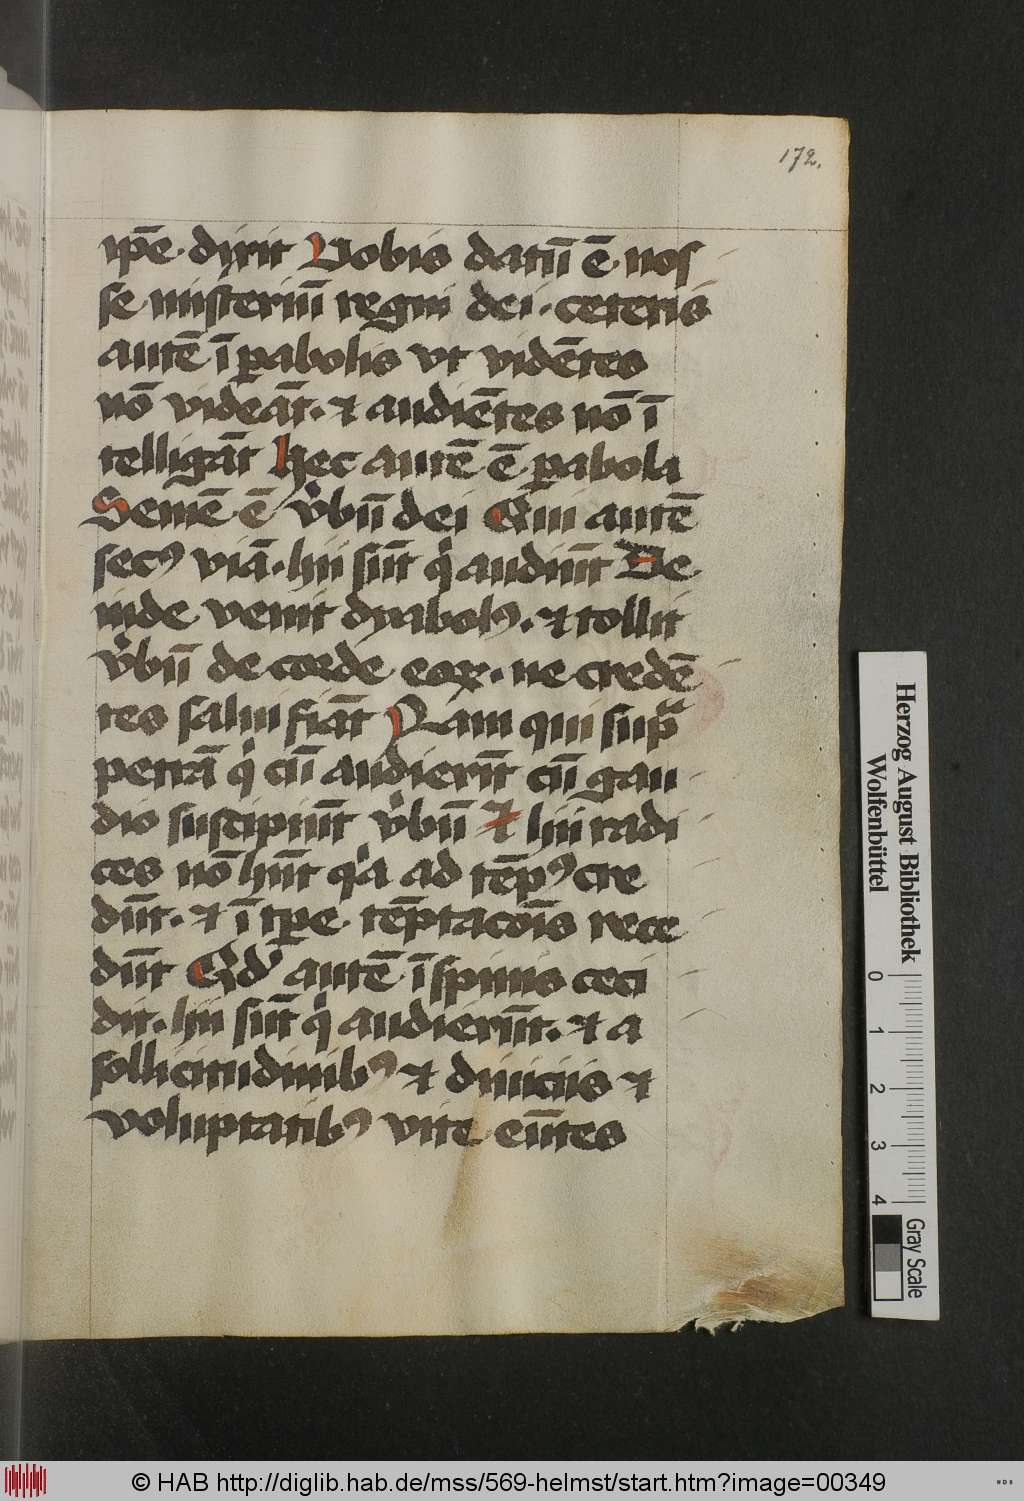 172.
ip̄e dixit Vobis datū ē nos
se misteriū regni dei. ceteris
autē ī pabolis vt vidētes
nō videāt. ⁊ audiētes nō ī
telligāt Hec autē ē pabola
Semē ē v̓bū dei Qui autē
secꝰ viā. hii sūt qͥ audiūt De
inde venit dyabolꝰ. ⁊ tollit
v̓bū de corde eoꝝ. ne credē
tes salui fiāt Nam qui supͣ
petrā qͥ cū audierīt cū gau
dio suscipiūt v̓bū ⁊ hii radi
ces nō hn̄t qͥa ad tēpꝰ cre
dūt. ⁊ ī tꝑe tēptacōis rece
dūt Qd̓ autē ī spinis ceci
dit. hii sūt qͥ audierūt. ⁊ a
sollicitudinibꝰ ⁊ diuiciis ⁊
voluptatibꝰ vite eūtes
Herzog August Bibliothek
Wolfenbüttel
0 1 2 3 4
Gray Scale
© HAB http://diglib.hab.de/mss/569-helmst/start.htm?image=00349